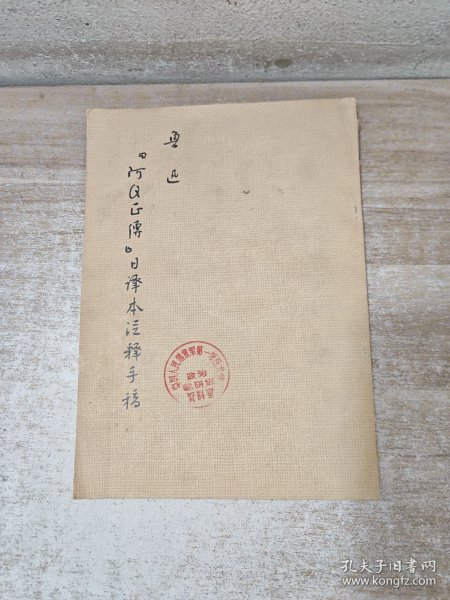 鲁迅
『阿Q正傳』日译本注释手稿
孔夫子旧书网
www.kongfz.com